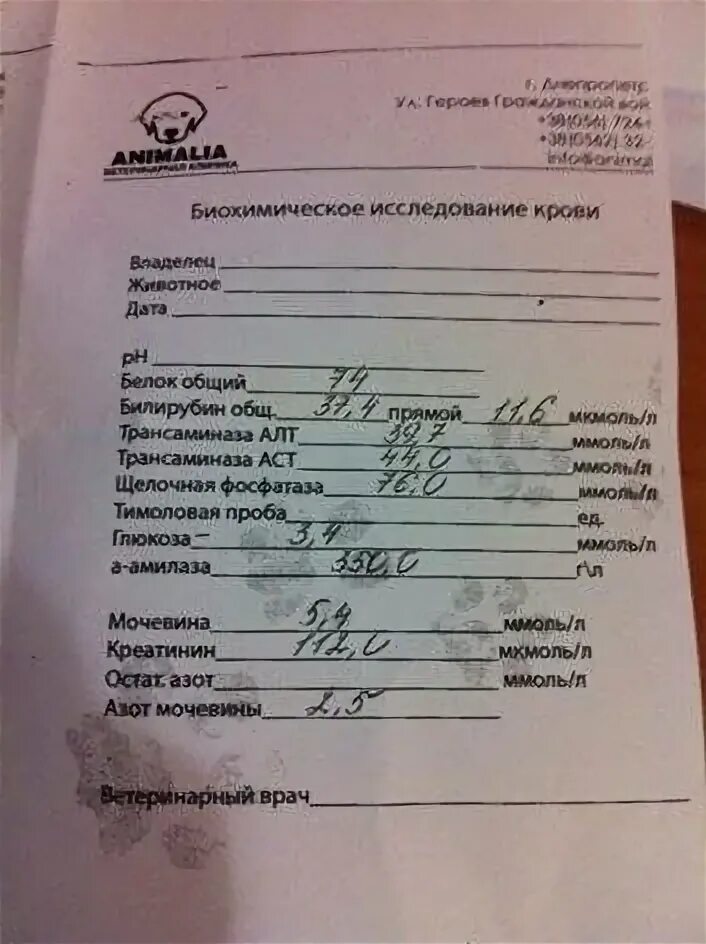 г. Днепропетр
Ул. Героев Гражданской вой
ANIMALIA
ВЕТЕРИНАРНАЯ КЛИНИКА
Биохимическое исследование крови
Владелец
Животное
Дата
pH
Белок общий 74
Билирубин общ. 37,4 прямой 11,6 мкмоль/л
Трансаминаза АЛТ 39,7 ммоль/л
Трансаминаза АСТ 44,0 ммоль/л
Щелочная фосфатаза 76,0 ммоль/л
Тимоловая проба ед.
Глюкоза – 3,4 ммоль/л
а-амилаза 350,0 г\л
Мочевина 5,4 ммоль/л
Креатинин 112,0 мкмоль/л
Остат. азот ммоль/л
Азот мочевины 2,5
Ветеринарный врач